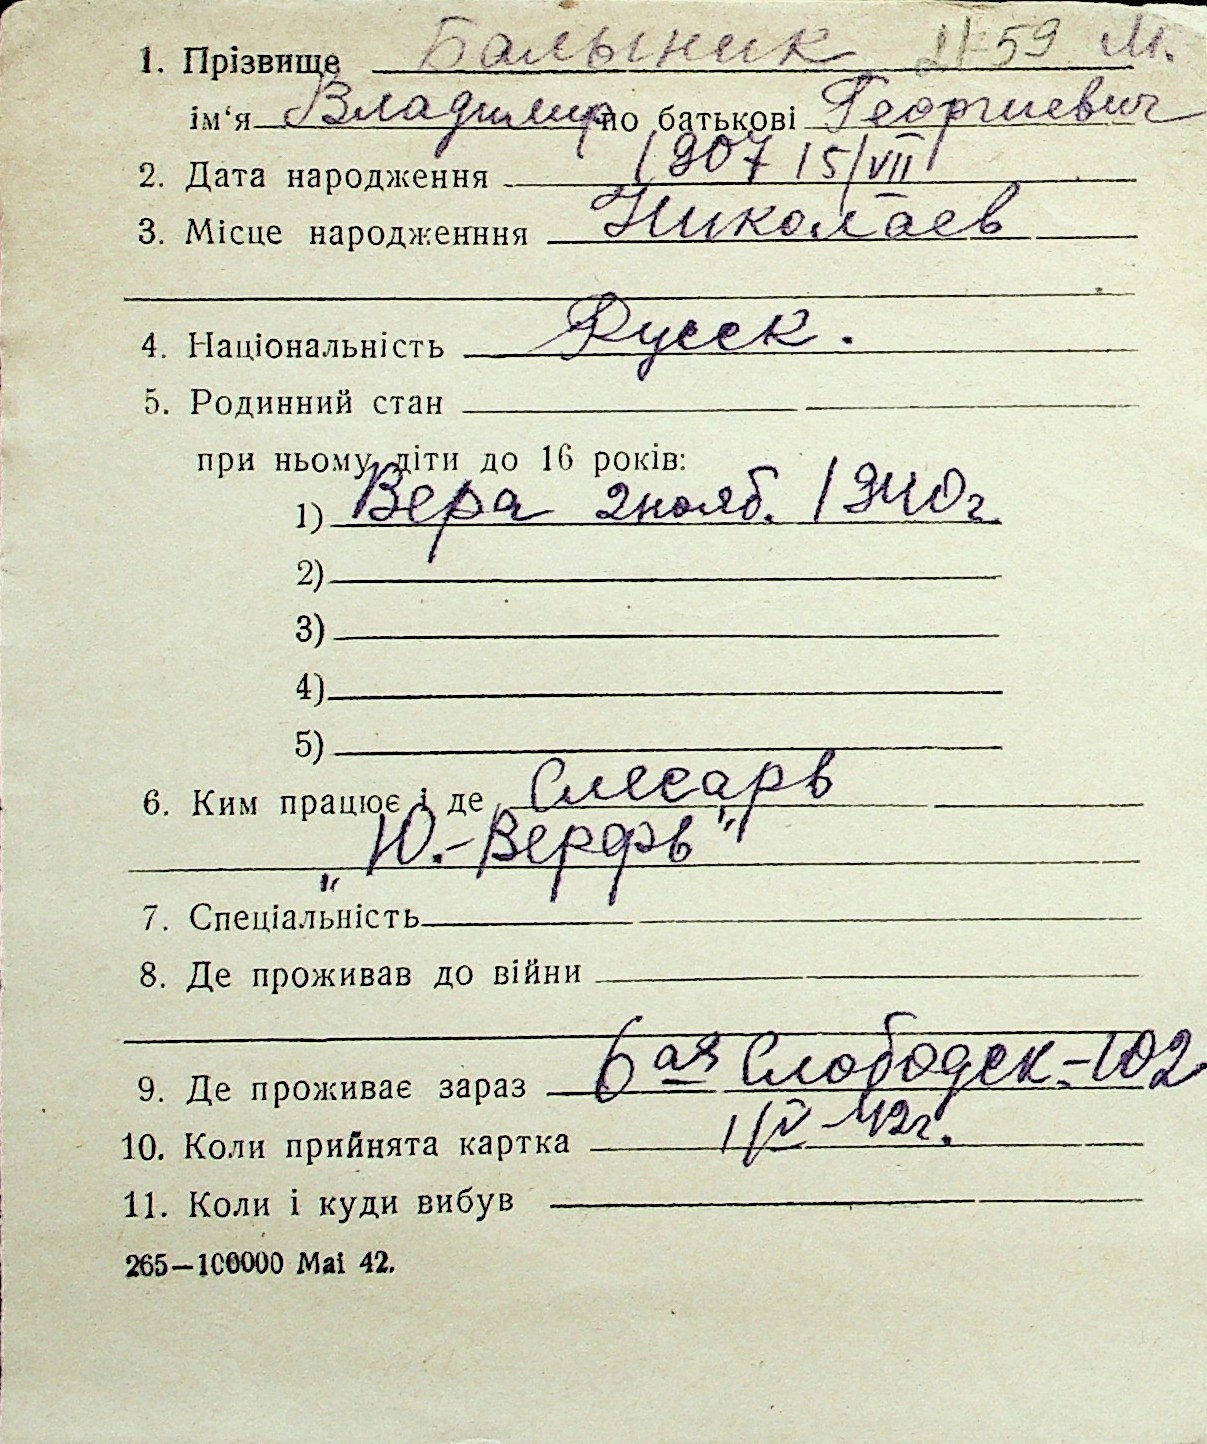 1. Прізвище Балыник 2159 М.
ім'я Владимир по батькові Георгиевич
2. Дата народження 1907 15/VII
3. Місце народженння Николаев
4. Національність Русск.
5. Родинний стан
при ньому діти до 16 років:
1) Вера 2 нояб. 1940 г
2)
3)
4)
5)
6. Ким працює і де Слесарь
„Ю.-Верфь"
7. Спеціальність
8. Де проживав до війни
9. Де проживає зараз 6ая Слободск-102
10. Коли прийнята картка 1/IV-42г.
11. Коли і куди вибув
265—100000 Mai 42.